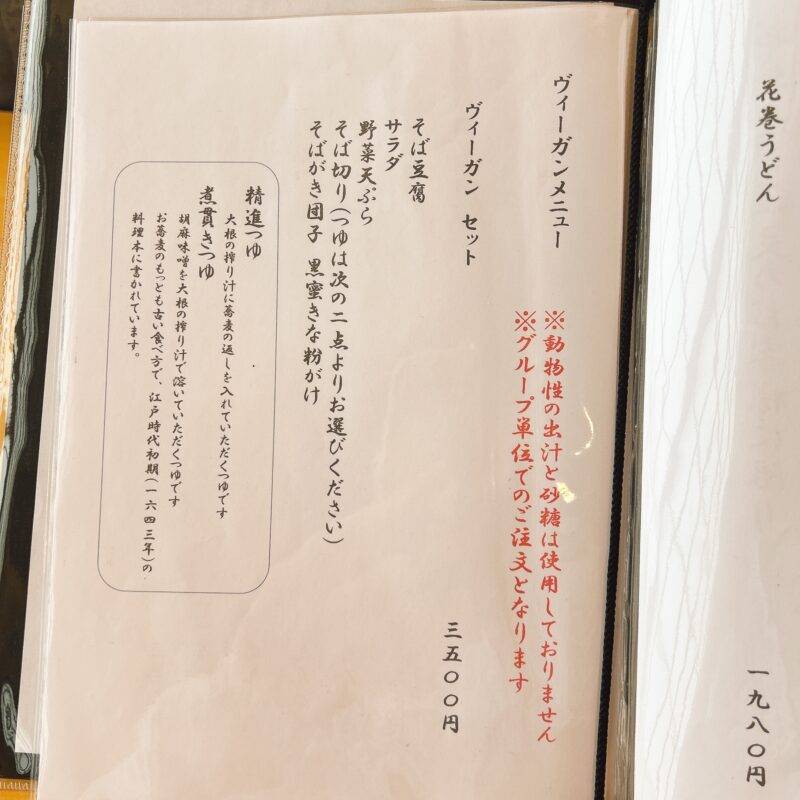 花巻うどん
一九八〇円
ヴィーガンメニュー
※動物性の出汁と砂糖は使用しておりません
※グループ単位でのご注文となります
ヴィーガン セット
三五〇〇円
そば豆腐
サラダ
野菜天ぷら
そば切り(つゆは次の二点よりお選びください)
そばがき団子 黒蜜きな粉がけ
精進つゆ
大根の搾り汁に蕎麦の返しを入れていただくつゆです
煮貫きつゆ
胡麻味噌を大根の搾り汁で溶いていただくつゆです
お蕎麦のもっとも古い食べ方で、江戸時代初期(一六四三年)の
料理本に書かれています。